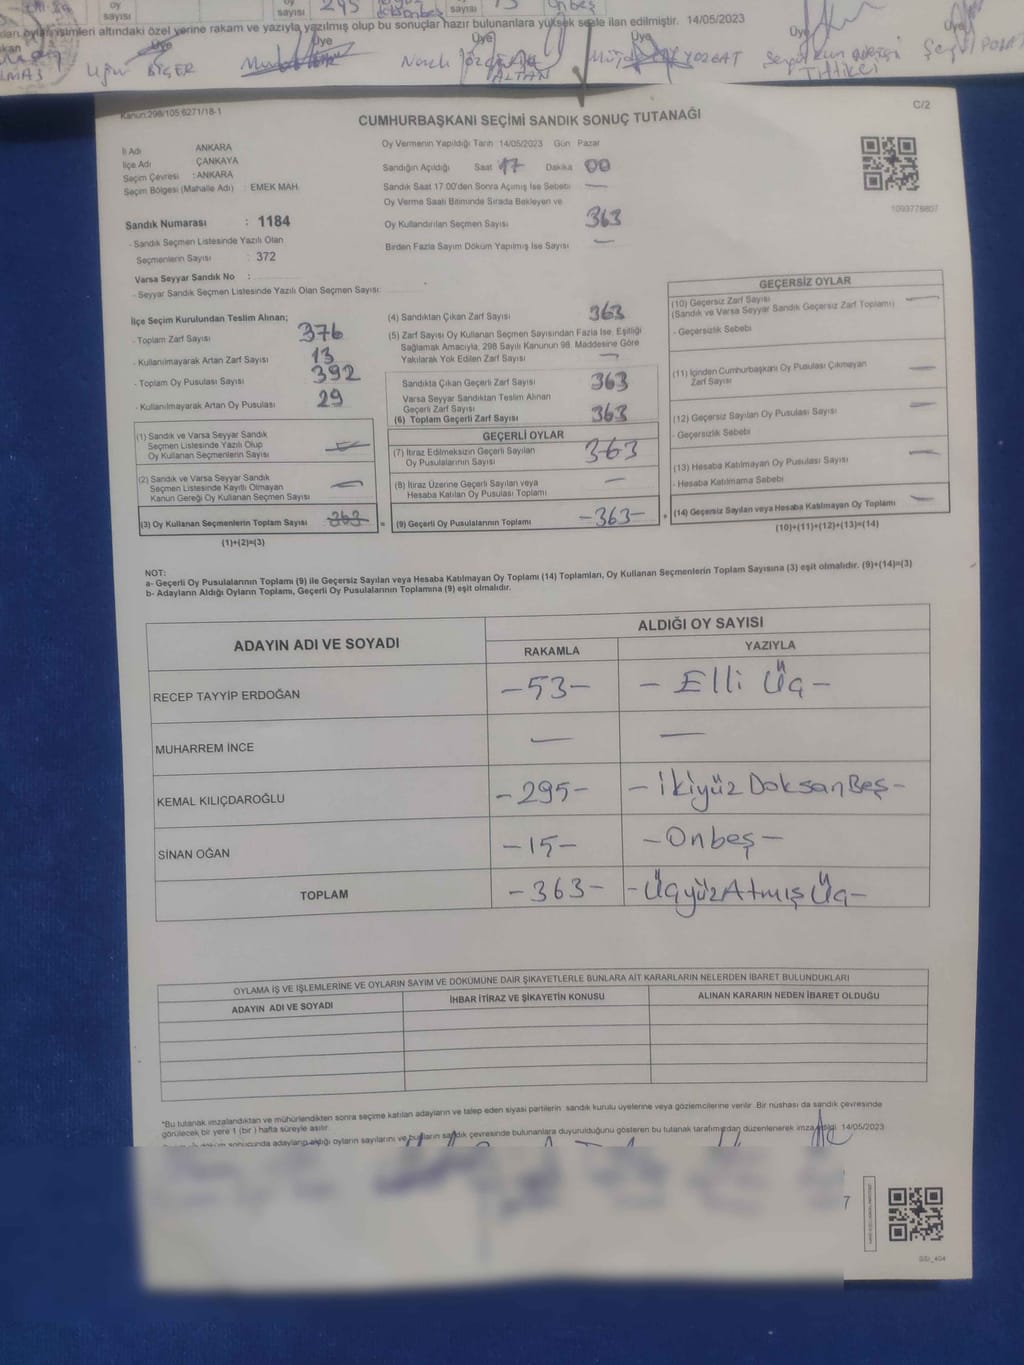 oy
sayısı
295
sayısı
15
onbeş
oyları isimleri altındaki özel yerine rakam ve yazıyla yazılmış olup bu sonuçlar hazır bulunanlara yüksek sesle ilan edilmiştir. 14/05/2023
Üye Üye Üye Üye Üye Üye
Uğur BİÇER
ALTAN
YOZGAT
Kanun:298/105 6271/18-1
C/2
CUMHURBAŞKANI SEÇİMİ SANDIK SONUÇ TUTANAĞI
İl Adı ANKARA
İlçe Adı ÇANKAYA
Seçim Çevresi : ANKARA
Seçim Bölgesi (Mahalle Adı) : EMEK MAH.
Sandık Numarası : 1184
- Sandık Seçmen Listesinde Yazılı Olan
Seçmenlerin Sayısı : 372
Varsa Seyyar Sandık No :
- Seyyar Sandık Seçmen Listesinde Yazılı Olan Seçmen Sayısı:
Oy Vermenin Yapıldığı Tarih 14/05/2023 Gün Pazar
Sandığın Açıldığı Saat 17 Dakika 00
Sandık Saat 17:00'den Sonra Açımış İse Sebebi —
Oy Verme Saati Bitiminde Sırada Bekleyen ve
Oy Kullandırılan Seçmen Sayısı 363
Birden Fazla Sayım Döküm Yapılmış İse Sayısı —
1093778807
İlçe Seçim Kurulundan Teslim Alınan;
- Toplam Zarf Sayısı 376
- Kullanılmayarak Artan Zarf Sayısı 13
- Toplam Oy Pusulası Sayısı 392
- Kullanılmayarak Artan Oy Pusulası 29
(1) Sandık ve Varsa Seyyar Sandık
Seçmen Listesinde Yazılı Olup
Oy Kullanan Seçmenlerin Sayısı
(2) Sandık ve Varsa Seyyar Sandık
Seçmen Listesinde Kayıtlı Olmayan
Kanun Gereği Oy Kullanan Seçmen Sayısı —
(3) Oy Kullanan Seçmenlerin Toplam Sayısı 363 =
(1)+(2)=(3)
(4) Sandıktan Çıkan Zarf Sayısı 363
(5) Zarf Sayısı Oy Kullanan Seçmen Sayısından Fazla İse, Eşitliği
Sağlamak Amacıyla, 298 Sayılı Kanunun 98. Maddesine Göre
Yakılarak Yok Edilen Zarf Sayısı —
Sandıkta Çıkan Geçerli Zarf Sayısı 363
Varsa Seyyar Sandıktan Teslim Alınan
Geçerli Zarf Sayısı
(6) Toplam Geçerli Zarf Sayısı 363
GEÇERLİ OYLAR
(7) İtiraz Edilmeksizin Geçerli Sayılan
Oy Pusulalarının Sayısı 363
(8) İtiraz Üzerine Geçerli Sayılan veya
Hesaba Katılan Oy Pusulası Toplamı —
(9) Geçerli Oy Pusulalarının Toplamı -363- +
GEÇERSİZ OYLAR
(10) Geçersiz Zarf Sayısı —
(Sandık ve Varsa Seyyar Sandık Geçersiz Zarf Toplamı)
- Geçersizlik Sebebi
(11) İçinden Cumhurbaşkanı Oy Pusulası Çıkmayan
Zarf Sayısı —
(12) Geçersiz Sayılan Oy Pusulası Sayısı —
- Geçersizlik Sebebi
(13) Hesaba Katılmayan Oy Pusulası Sayısı —
- Hesaba Katılmama Sebebi
(14) Geçersiz Sayılan veya Hesaba Katılmayan Oy Toplamı —
(10)+(11)+(12)+(13)=(14)
NOT:
a- Geçerli Oy Pusulalarının Toplamı (9) ile Geçersiz Sayılan veya Hesaba Katılmayan Oy Toplamı (14) Toplamları, Oy Kullanan Seçmenlerin Toplam Sayısına (3) eşit olmalıdır. (9)+(14)=(3)
b- Adayların Aldığı Oyların Toplamı, Geçerli Oy Pusulalarının Toplamına (9) eşit olmalıdır.
ADAYIN ADI VE SOYADI
ALDIĞI OY SAYISI
RAKAMLA YAZIYLA
RECEP TAYYİP ERDOĞAN -53- - Elli Üç -
MUHARREM İNCE — —
KEMAL KILIÇDAROĞLU -295- - İkiyüz Doksan Beş -
SİNAN OĞAN -15- - Onbeş -
TOPLAM -363- - ÜçyüzAtmış Üç -
OYLAMA İŞ VE İŞLEMLERİNE VE OYLARIN SAYIM VE DÖKÜMÜNE DAİR ŞİKAYETLERLE BUNLARA AİT KARARLARIN NELERDEN İBARET BULUNDUKLARI
ADAYIN ADI VE SOYADI İHBAR İTİRAZ VE ŞİKAYETİN KONUSU ALINAN KARARIN NEDEN İBARET OLDUĞU
*Bu tutanak imzalandıktan ve mühürlendikten sonra seçime katılan adayların ve talep eden siyasi partilerin sandık kurulu üyelerine veya gözlemcilerine verilir. Bir nüshası da sandık çevresinde
görülecek bir yere 1 (bir) hafta süreyle asılır.
sonucunda adayların aldığı oyların sayılarını ve bunların sandık çevresinde bulunanlara duyurulduğunu gösteren bu tutanak tarafımızdan düzenlenerek imzalandı. 14/05/2023
7
SSI_404